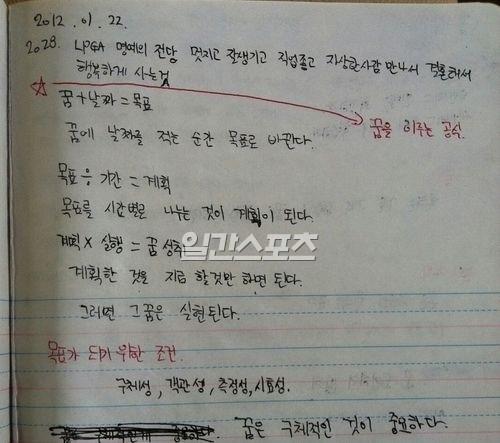 2012. 01. 22.
2028. LPGA 명예의 전당 멋지고 잘생기고 직업좋고 자상한사람 만나서 결혼해서
행복하게 사는것
☆
꿈+날짜=목표
꿈을 이루는 공식.
꿈에 날짜를 적는 순간 목표로 바뀐다.
목표 ÷ 기간 = 계획
목표를 시간별로 나누는 것이 계획이 된다.
계획 X 실행 = 꿈 성취
일간스포츠
계획한 것을 지금 할것만 하면 된다.
그러면 그 꿈은 실현된다.
목표가 되기 위한 조건.
구체성, 객관성, 측정성, 시효성.
꿈은 구체적인 것이 중요하다.